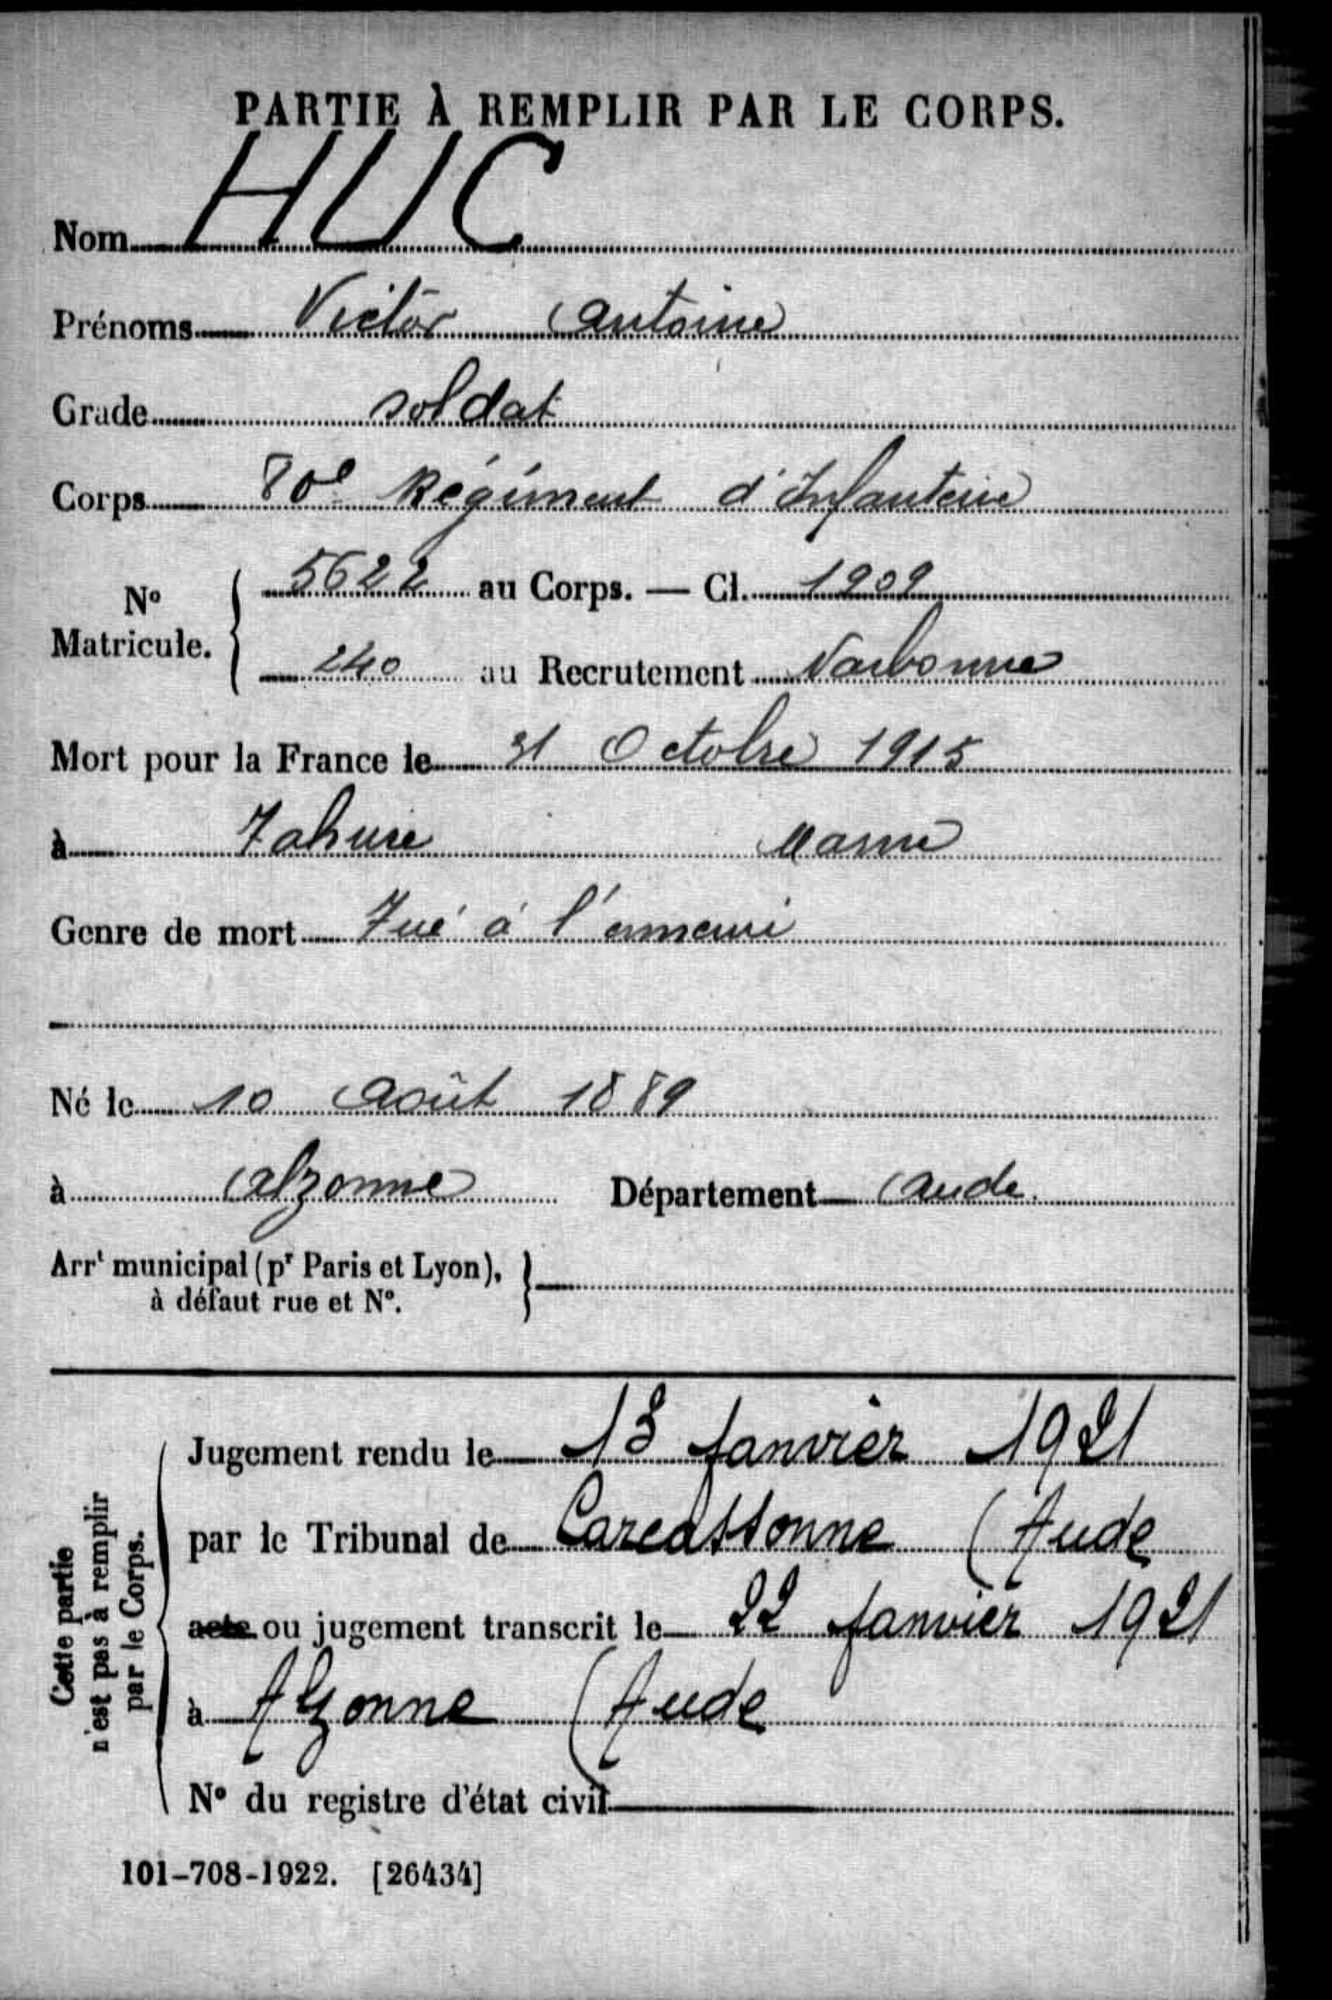 PARTIE À REMPLIR PAR LE CORPS.
Nom HUC
Prénoms Victor Antoine
Grade soldat
Corps 80e Régiment d'Infanterie
No Matricule. { 5622 au Corps. — Cl. 1909
240 au Recrutement Narbonne
Mort pour la France le 31 Octobre 1915
à Tahure Marne
Genre de mort Tué à l'ennemi
Né le 10 Août 1889
à Alzonne Département Aude.
Arrt municipal (pr Paris et Lyon), }
à défaut rue et No.
Cette partie
n'est pas à remplir
par le Corps.
Jugement rendu le 13 Janvier 1921
par le Tribunal de Carcassonne (Aude
acte ou jugement transcrit le 22 Janvier 1921
à Alzonne (Aude
No du registre d'état civil
101-708-1922. [26434]